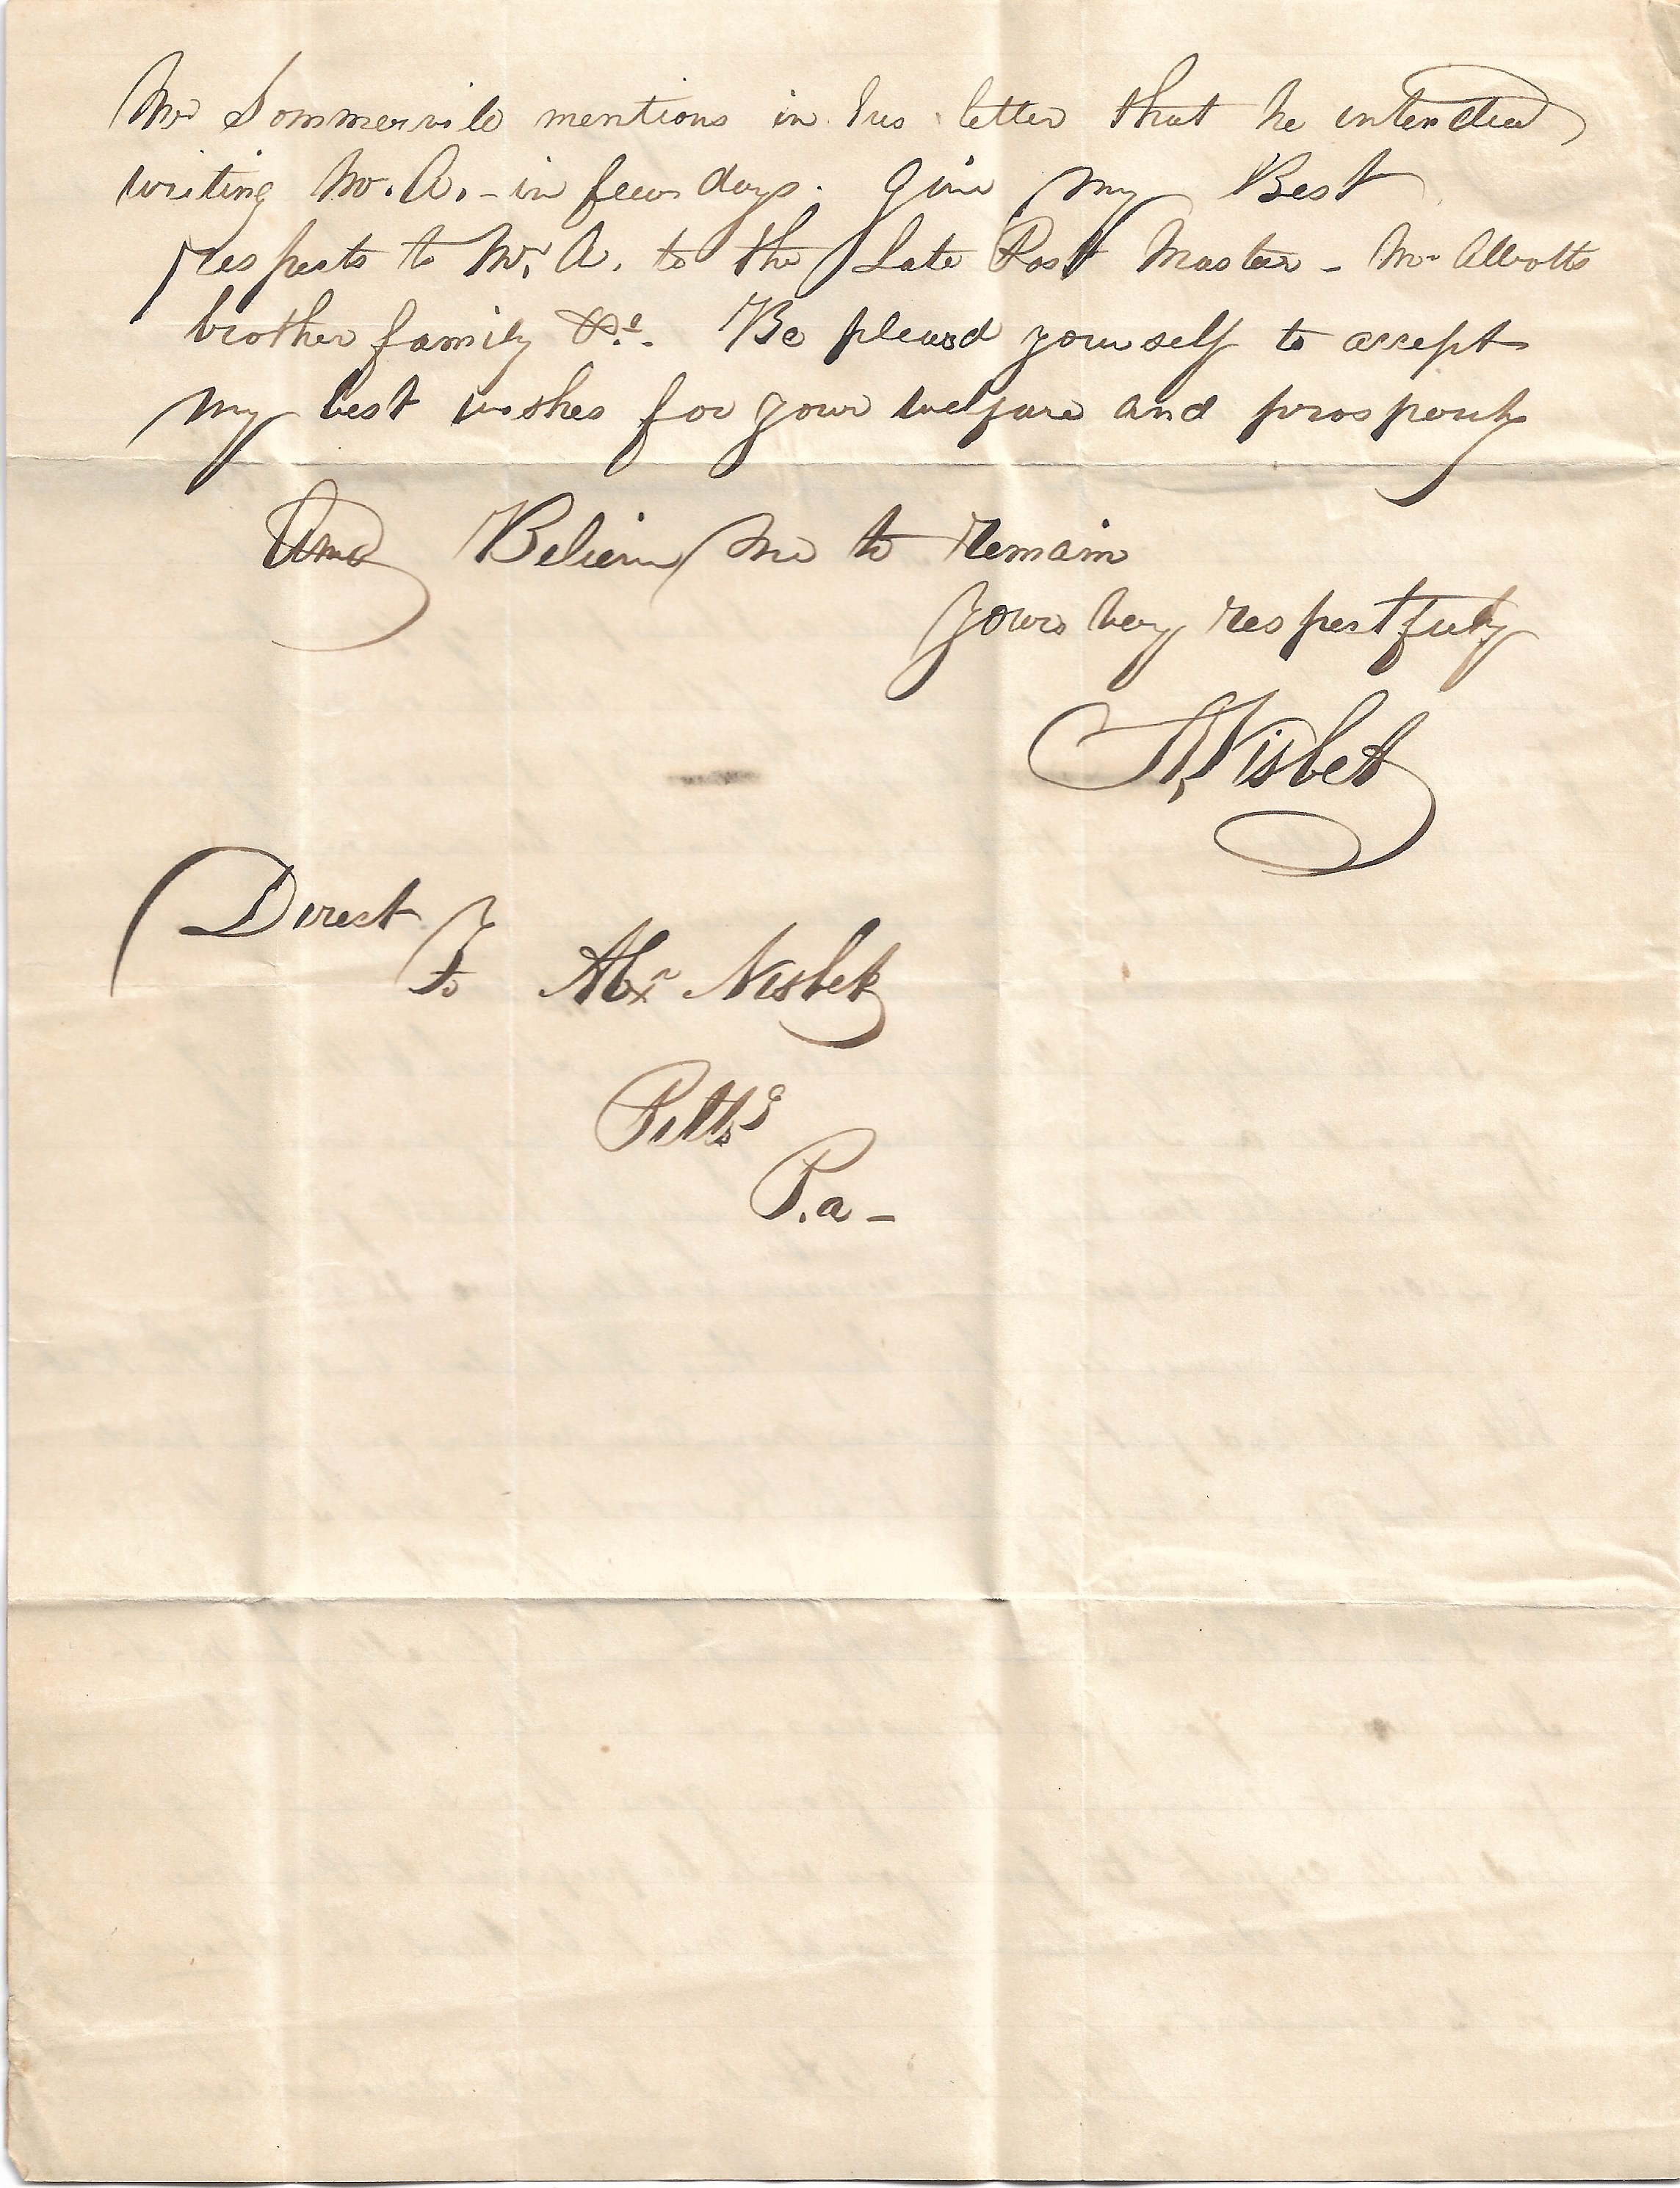 Mr Sommervile mentions in his letter that he intended
writing Mr. A. - in few days. Give my Best
respects to Mr. A. to the Late Post Master - Mr Abbotts
brother family &c. Be pleasd yourself to accept
my best wishes for your welfare and prosperity
And Believe me to remain
Yours very respectfuly
A, Nisbet
Direct
To Alxr Nisbet
Pittsg
P.a -